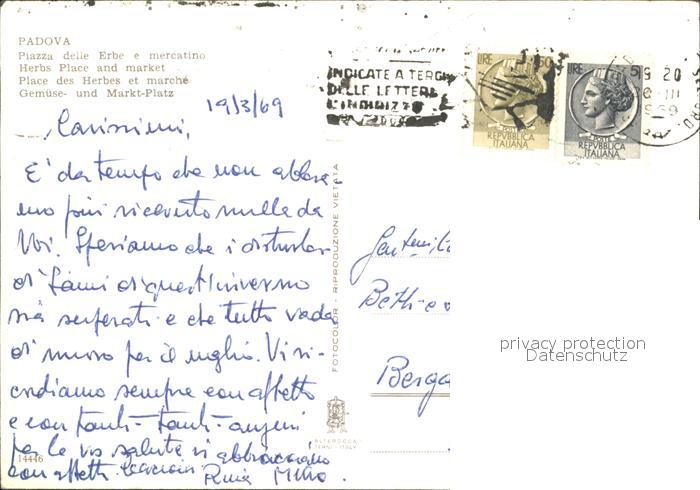 PADOVA
Piazza delle Erbe e mercatino
Herbs Place and market
Place des Herbes et marché
Gemüse- und Markt-Platz
INDICATE A TERGO
DELLE LETTERE
L'INDIRIZZO
LIRE 50
POSTE
REPVBBLICA
ITALIANA
LIRE 5
POSTE
REPVBBLICA
ITALIANA
9 20
III
1969
19/3/69
Carissimi,
E' da tempo che non abbia-
mo più ricevuto nulla da
Voi. Speriamo che i disturbi
di quest'inverno
sia superati e che tutto vada
di nuovo per il meglio. Vi ri-
cordiamo sempre con affetto
e con tanti-tanti auguri
per la vs salute vi abbracciamo
con affetto
FOTOCOLOR - RIPRODUZIONE VIETATA
Berga
privacy protection
Datenschutz
ALTEROCCA
TERNI - ITALY
14446